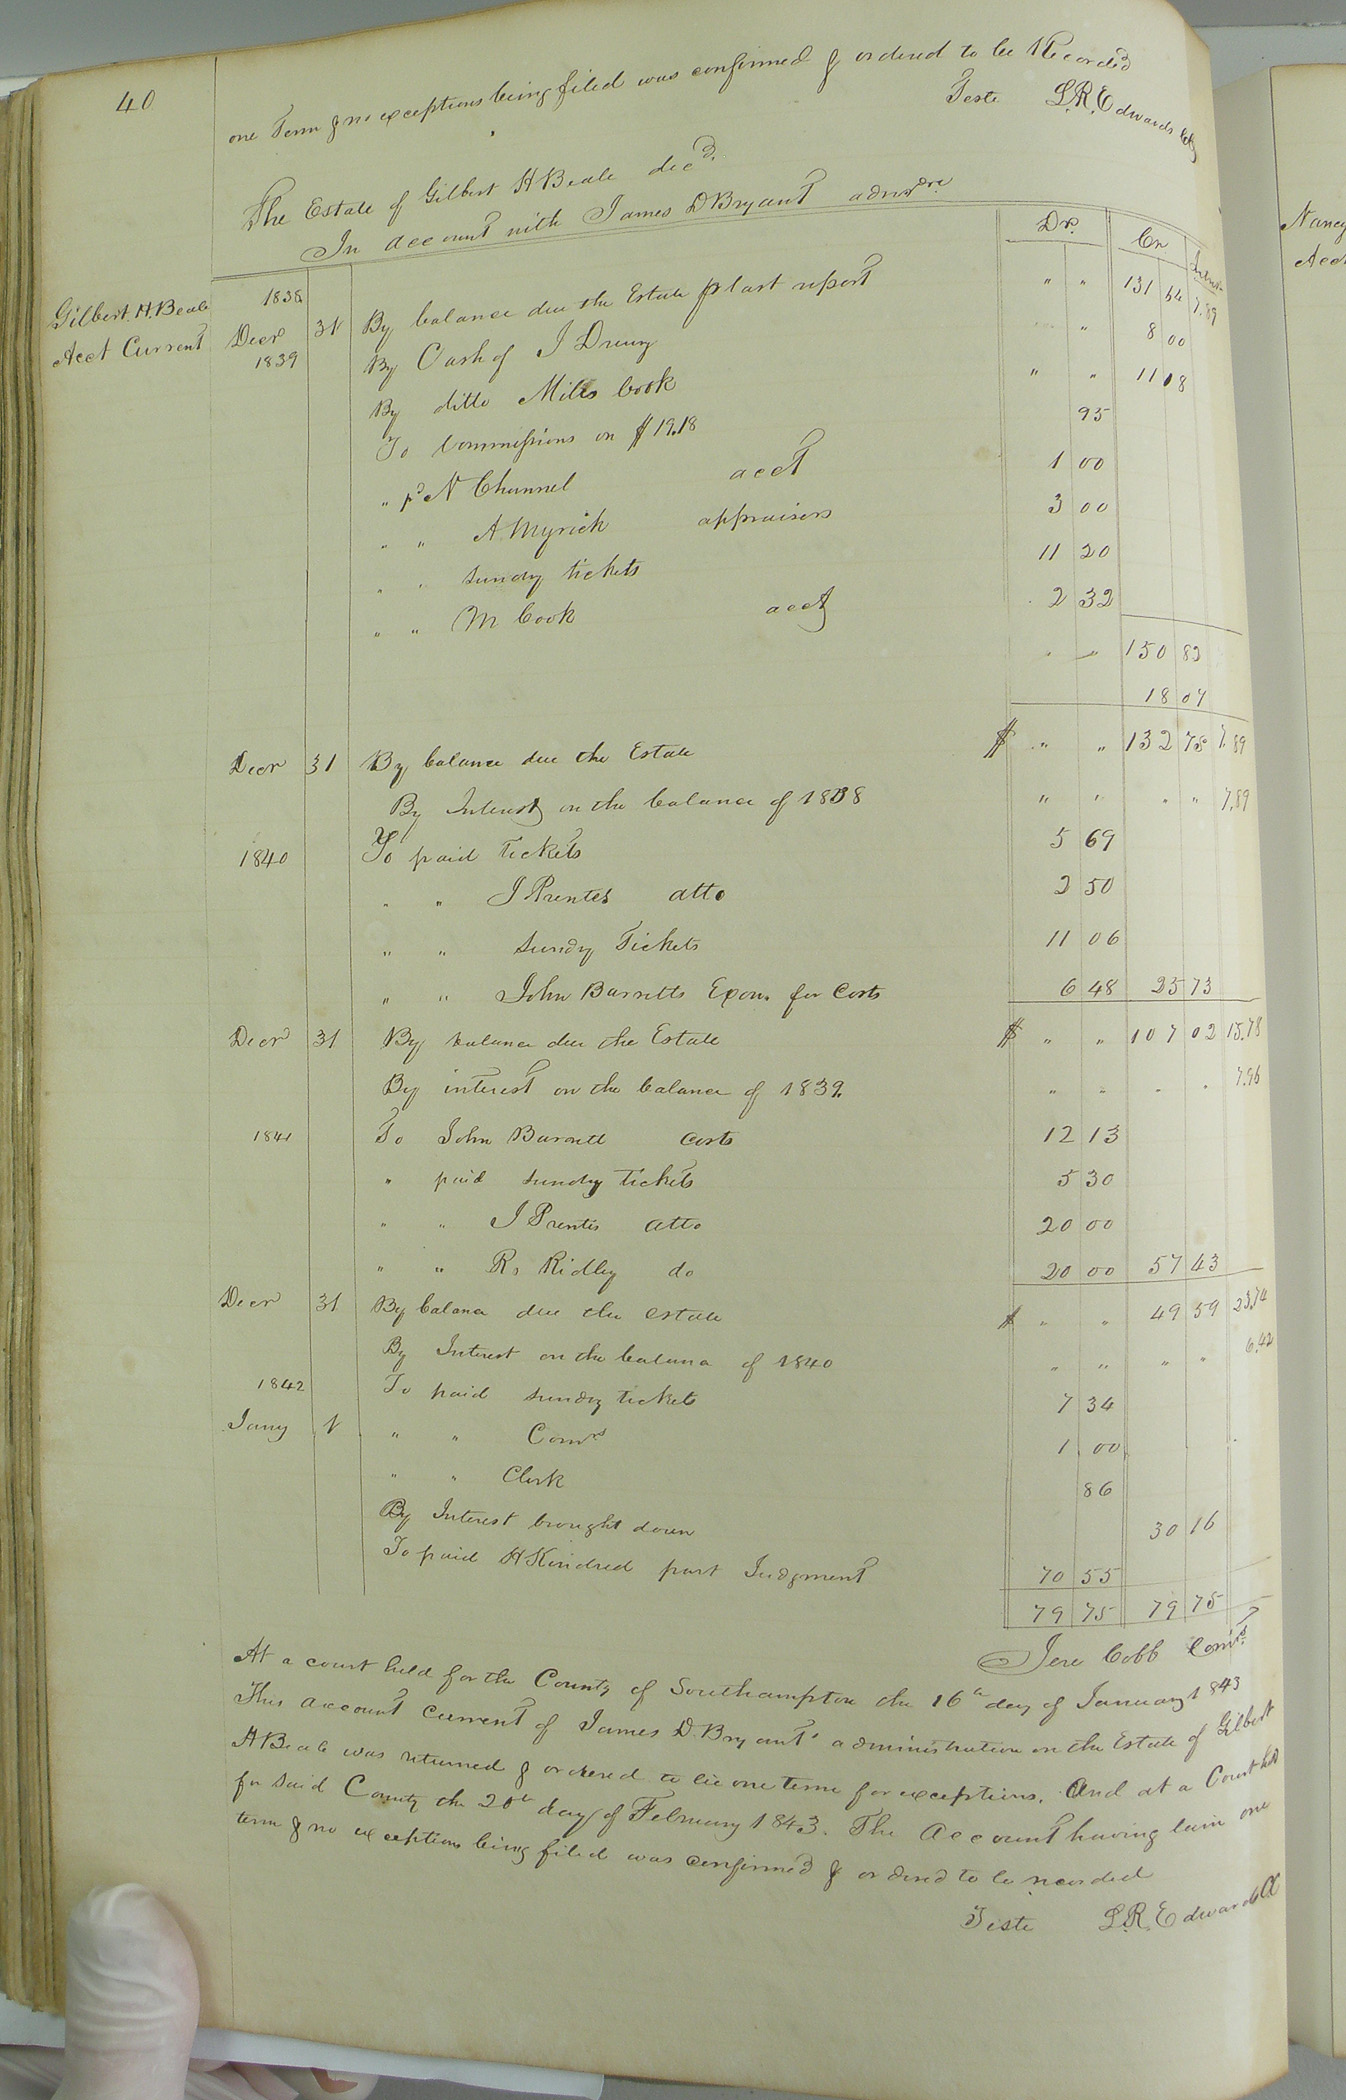 40
one Term & no exceptions being filed was confirmed & ordered to be Recorded
Teste L.R. Edwards Clk
The Estate of Gilbert H Beale decd.
In account with James D Bryant admr
Dr. Cr Interest
Gilbert. H. Beale
Acct Current
1838
Decr 31 By balance due the Estate pr last report " " 131 64 7.89
1839 By Cash of J Drury " 8 00
By ditto Mills book " " 11 18
To Commissions on $19.18 95
" pd N Channel acct 1 00
" " A Myrick appraisers 3 00
" " sundry tickets 11 20
" " M Cook acct 2 32
" " 150 82
18 07
Decr 31 By balance due the Estate $ " " 132 75 7.89
By Interest on the balance of 1838 " " " " 7.89
1840 To paid tickets 5 69
" " J Prentis atto 2 50
" " Sundry Tickets 11 06
" " John Barretts Exon. for Costs 6 48 25 73
Decr 31 By balance due the Estate $ " " 107 02 15.78
By interest on the balance of 1839. " " " " 7.96
1841 To John Barrett Costs 12 13
" paid sundry tickets 5 30
" " J Prentis atto 20 00
" " R. Ridley do 20 00 57 43
Decr 31 By balance due the estate $ " " 49 59 23.74
By Interest on the balance of 1840 " " " " 6.42
1842 To paid sundry tickets 7 34
Jany 1 " " Comrs 1 00
" " Clerk 86
By Interest brought down 30 16
To paid H Kindred part Judgment 70 55
79 75 79 75
Jere Cobb Comr.
At a court held for the County of Southampton the 16th day of January 1843
This account current of James D. Bryants administration on the Estate of Gilbert
H Beale was returned & ordered to lie one term for exceptions. And at a Court held
for said County the 20th day of February 1843. The Account having lain one
term & no exceptions being filed was confirmed & ordered to be recorded
Teste L.R. Edwards CC
Nancy
Acct